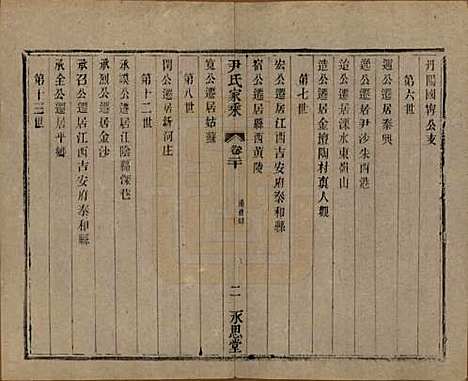 丹陽國寗公支
第六世
迥公遷居泰興
逸公遷居尹沙朱西港
迨公遷居溧水東嶺山
造公遷居金壇陶村真人觀
第七世
宏公遷居江西吉安府泰和縣
宿公遷居江西黄陵
尹氏家乘
卷二十
二
永思堂
寬公遷居姑蘇
第八世
閏公遷居新河庄
第十二世
承謨公遷居江陰楊深巷
承烈公遷居金沙
承召公遷居江西吉安府泰和縣
承全公遷居平鄉
第十三世